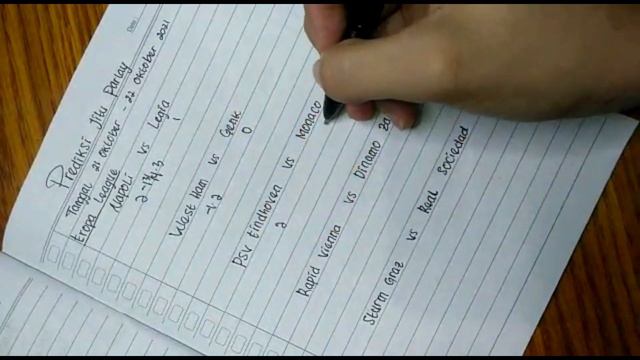 Date:
Prediksi Jitu Parlay
Tanggal 21 Oktober - 22 Oktober 2021
Eropa League
Napoli vs Legia
1
West Ham vs Genk
-1 2 0
PSV Eindhoven vs Monaco
2
Rapid Vienna vs Dinamo Za
Sturm Graz vs Real Sociedad